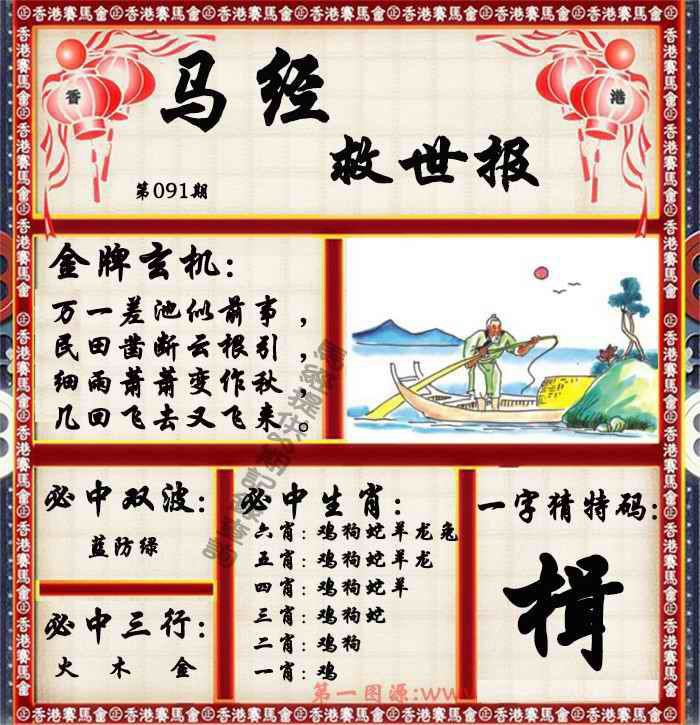 香港賽馬會㊣香港賽馬會㊣香港賽馬會㊣香港賽馬會㊣香港賽馬會㊣香港賽馬會
香
港
马经
救世报
第091期
金牌玄机：
万一差池似前事，
民田凿断云根引，
细雨萧萧变作秋，
几回飞去又飞来。
必中双波：
蓝防绿
必中三行：
火 木 金
必中生肖：
六肖：鸡狗蛇羊龙兔
五肖：鸡狗蛇羊龙
四肖：鸡狗蛇羊
三肖：鸡狗蛇
二肖：鸡狗
一肖：鸡
一字猜特码：
揖
第一图源:www